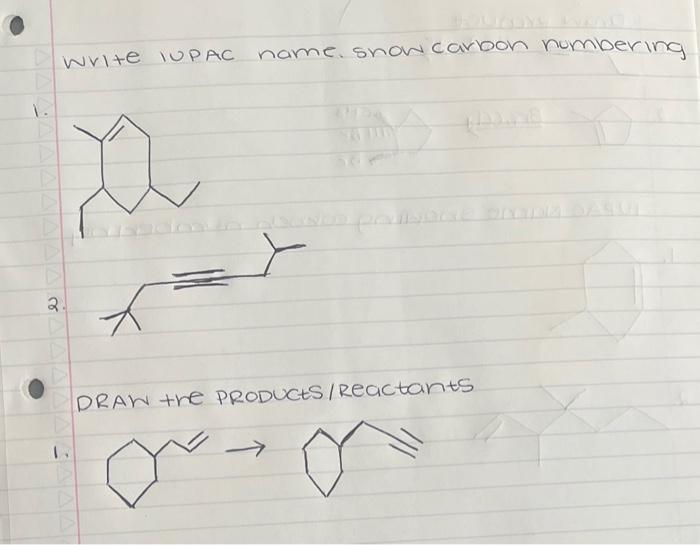 Write IUPAC name. show carbon numbering
1.
2.
DRAW the PRODUCTS/Reactants
1.